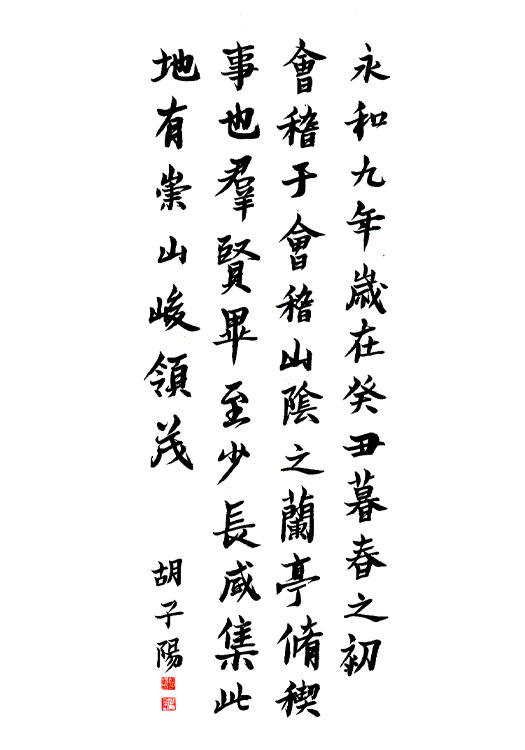 永和九年歲在癸丑暮春之初
會稽于會稽山陰之蘭亭脩稧
事也羣賢畢至少長咸集此
地有崇山峻領茂
胡子陽